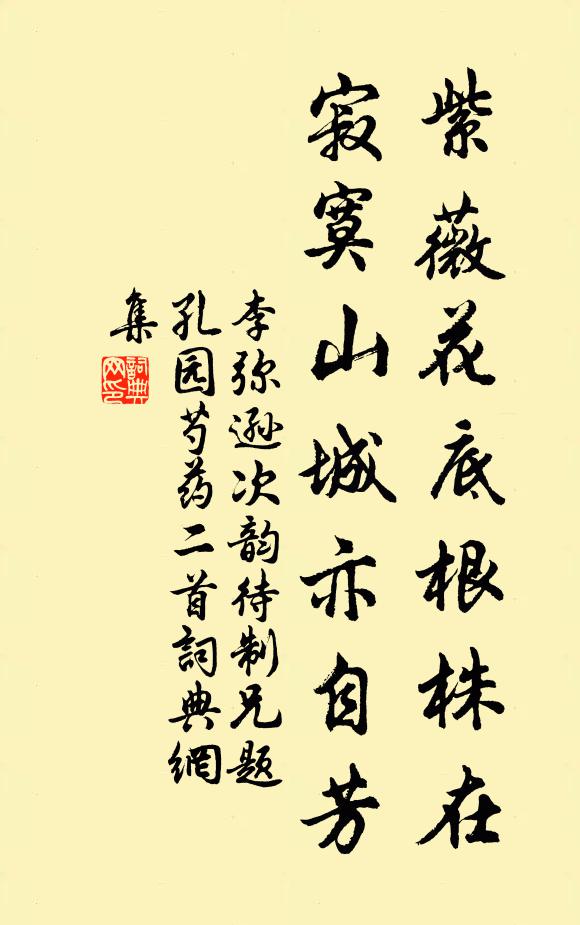 紫薇花底根株在
寂寞山城亦自芳
李弥逊次韵待制兄题
孔园芍药二首詞典網
集
詞典
网印